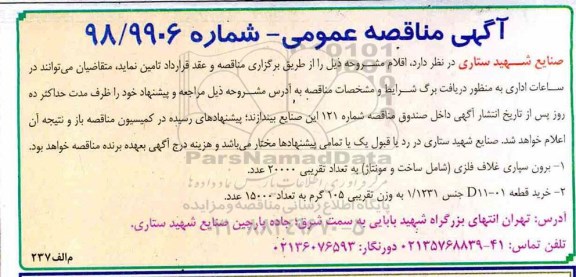 آگهی مناقصه عمومی- شماره ۹۸/۹۹۰۶
صنایع شـهید ستاری در نظر دارد، اقلام مشـروحه ذیل را از طریق برگزاری مناقصه و عقد قرارداد تامین نماید، متقاضیان می‌توانند در
ساعات اداری به منظور دریافت برگ شـرایط و مشخصات مناقصه به آدرس مشـروحه ذیل مراجعه و پیشنهاد خود را ظرف مدت حداکثر ده
روز پس از تاریخ انتشار آگهی داخل صندوق مناقصه شماره ۱۲۱ این صنایع بیندازند؛ پیشنهادهای رسیده در کمیسیون مناقصه باز و نتیجه آن
اعلام خواهد شد. صنایع شهید ستاری در رد یا قبول یک یا تمامی پیشنهادها مختار می‌باشد و هزینه درج آگهی بعهده برنده مناقصه خواهد بود.
۱- برون سپاری غلاف فلزی (شامل ساخت و مونتاژ) به تعداد تقریبی ۲۰۰۰۰ عدد.
۲- خرید قطعه D۱۱-۰۱ جنس ۱/۱۲۳۱ به وزن تقریبی ۱۰۵ گرم به تعداد ۱۵۰۰۰ عدد.
آدرس: تهران انتهای بزرگراه شهید بابایی به سمت شرق؛ جاده پارچین صنایع شهید ستاری.
تلفن تماس: ۴۱-۰۲۱۳۵۷۶۸۸۳۹ دورنگار: ۰۲۱۳۶۰۷۶۵۹۳
م‌الف۲۳۷
ParsNamadData
پایگاه اطلاع رسانی مناقصه و مزایده
۰۲۱-۸۸۳۴۹۶۷۰-۵